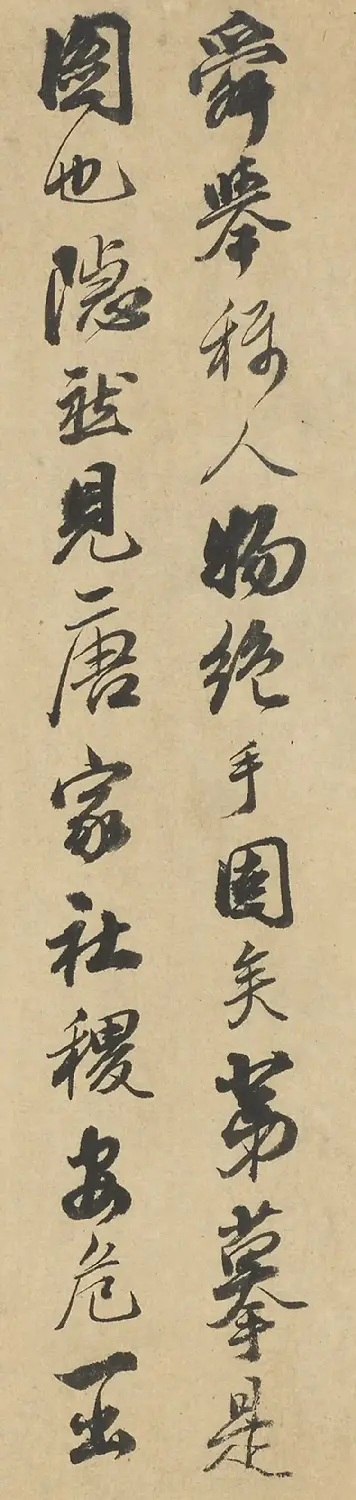 舜舉稱人物絶手固矣第摹是
圖也隱然見唐家社稷安危一出